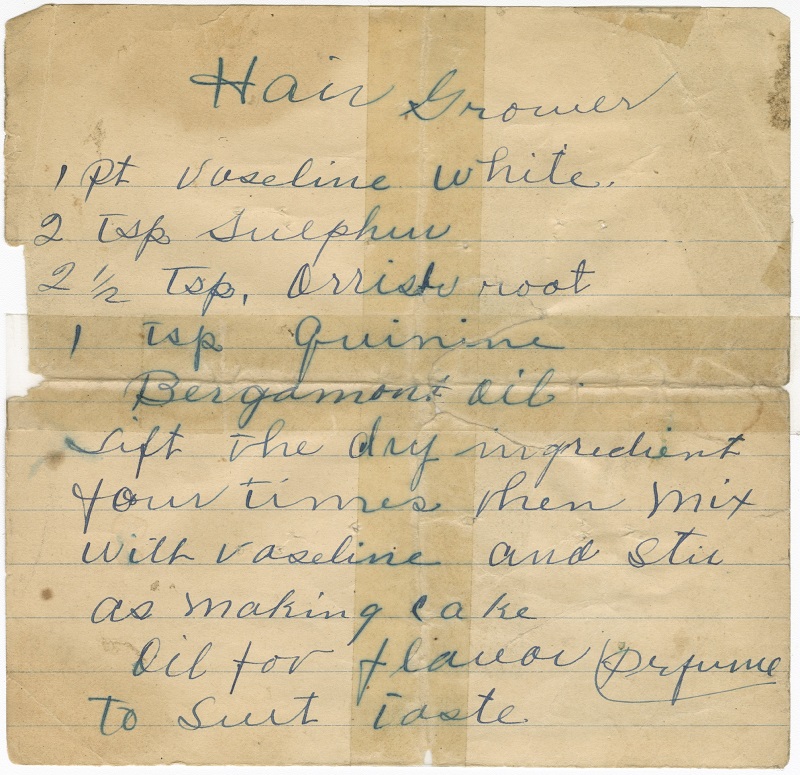 Hair Grower
1 pt vaseline white.
2 Tsp Sulphur
2 1/2 Tsp. Orrish root
1 Tsp Quinine
Bergamont Oil.
Sift the dry ingredient
four times then mix
with vaseline and stir
as making cake
Oil for flavor (Perfume
to Suit taste